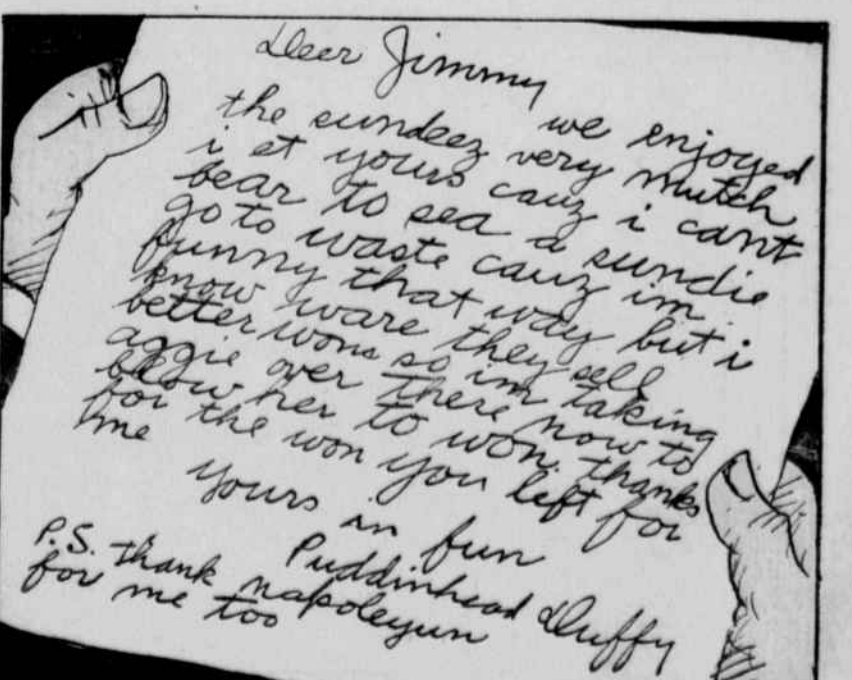 Deer Jimmy
we enjoyed
the sundeez very mutch
i et yours cauz i cant
bear to sea a sundie
go to waste cauz im
funny that way but i
know ware they sell
better wons so im taking
aggie over there now to
blow her to won. thanks
for the won you left for
me
yours in fun
Puddinhead Duffy
P.S. thank napoleyun
for me too